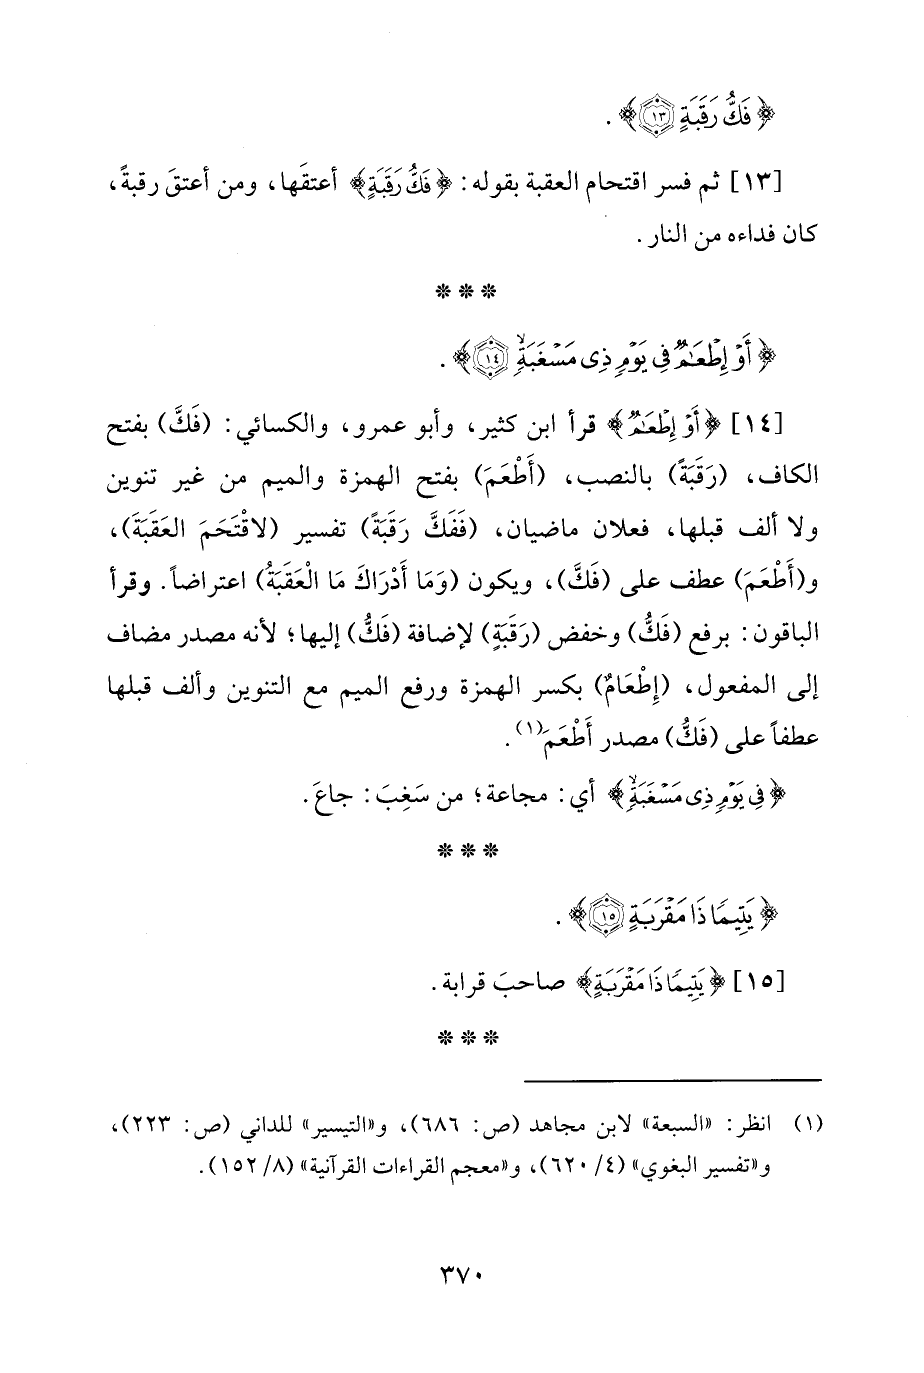 ﴿ فَكُّ رَقَبَةٍ ۝١٣﴾ .
[١٣] ثم فسر اقتحام العقبة بقوله: ﴿ فَكُّ رَقَبَةٍ﴾ أعتقَها، ومن أعتقَ رقبةً،
كان فداءه من النار.
* * *
﴿ أَوْ إِطْعَٰمٌ فِى يَوْمٍ ذِى مَسْغَبَةٍ ۝١٤﴾ .
[١٤] ﴿ أَوْ إِطْعَٰمٌ﴾ قرأ ابن كثير، وأبو عمرو، والكسائي: (فَكَّ) بفتح
الكاف، (رَقَبَةً) بالنصب، (أَطْعَمَ) بفتح الهمزة والميم من غير تنوين
ولا ألف قبلها، فعلان ماضيان، (فَفَكَّ رَقَبَةً) تفسير (لاقْتَحَمَ العَقَبَةَ)،
و(أَطْعَمَ) عطف على (فَكَّ)، ويكون (وَمَا أَدْرَاكَ مَا الْعَقَبَةُ) اعتراضاً. وقرأ
الباقون: برفع (فَكُّ) وخفض (رَقَبَةٍ) لإضافة (فَكُّ) إليها؛ لأنه مصدر مضاف
إلى المفعول، (إِطْعَامٌ) بكسر الهمزة ورفع الميم مع التنوين وألف قبلها
عطفاً على (فَكُّ) مصدر أَطْعَمَ(١).
﴿ فِى يَوْمٍ ذِى مَسْغَبَةٍ﴾ أي: مجاعة؛ من سَغِبَ: جاعَ.
* * *
﴿ يَتِيمًا ذَا مَقْرَبَةٍ ۝١٥﴾ .
[١٥] ﴿ يَتِيمًا ذَا مَقْرَبَةٍ﴾ صاحبَ قرابة.
* * *
(١) انظر: «السبعة» لابن مجاهد (ص: ٦٨٦)، و«التيسير» للداني (ص: ٢٢٣)،
و«تفسير البغوي» (٤/ ٦٢٠)، و«معجم القراءات القرآنية» (٨/ ١٥٢).
٣٧٠